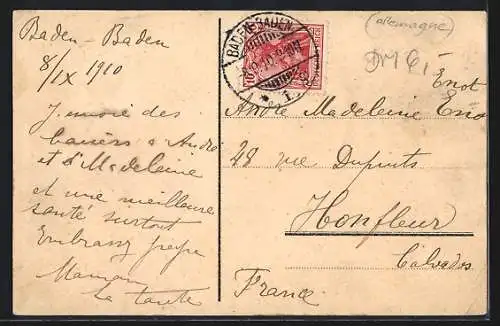 Baden-Baden
8/IX 1910
J'envoie des
baisers à André
et à Madeleine
et une meilleure
santé surtout
Embrassez
Maman
la tante
BADEN-BADEN
(allemagne)
Enot
André Madeleine Eno
28 rue Dupuits
Honfleur
Calvados
France